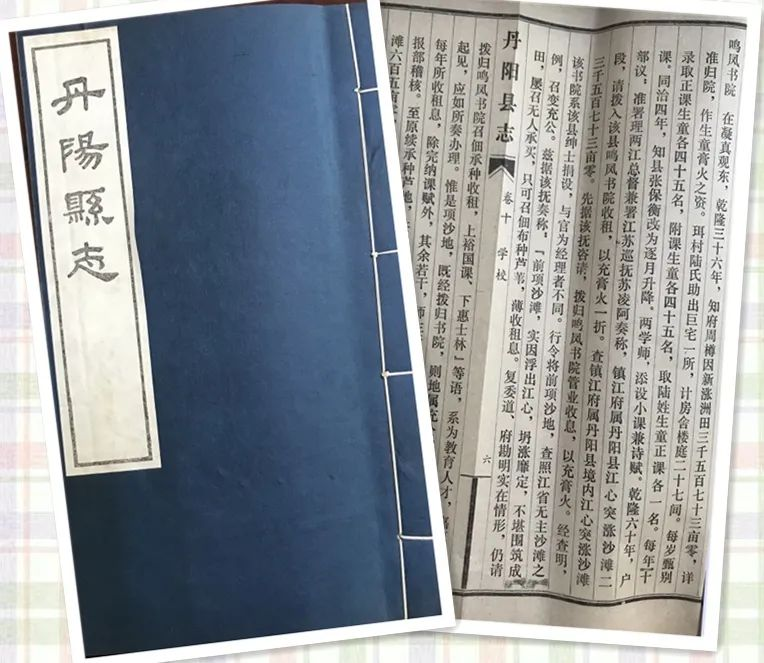 丹陽縣志
鸣凤书院 在凝真观东，乾隆三十六年，知府周樽因新涨洲田三千五百七十三亩零，详
准归院，作生童膏火之资。珥村陆氏助出巨宅一所，计房舍楼庭二十七间。每岁甄别
录取正课生童各四十五名，附课生童各四十五名，取陆姓生童正课各一名。每年十
课。同治四年，知县张保衡改为逐月升降。两学师，添设小课兼诗赋。乾隆六十年，户
部议，准署理两江总督兼署江苏巡抚苏凌阿奏称，镇江府属丹阳县江心突涨沙滩二
段，请拨入该县鸣凤书院收租，以充膏火一折。查镇江府属丹阳县境内江心突涨沙滩
三千五百七十三亩零。先据该抚咨请，拨归鸣凤书院管业收息，以充膏火。经查明，
该书院系该县绅士捐设，与官为经理者不同。行令将前项沙地，查照江省无主沙滩之
例，召变充公。兹据该抚奏称，「前项沙滩，实因浮出江心，坍涨靡定，不堪围筑成
田，屡召无人承买，只可召佃布种芦苇，薄收租息。复委道、府勘明实在情形，仍请
丹阳县志 卷十 学校 六
拨归鸣凤书院召佃承种收租，上裕国课、下惠士林」等语，系为教育人才，
起见，应如所奏办理。惟是项沙地，既经拨归书院，则地属充
每年所收租息，除完纳课赋外，其余若干，师
报部稽核。至原续承种芦地，
滩六百五亩